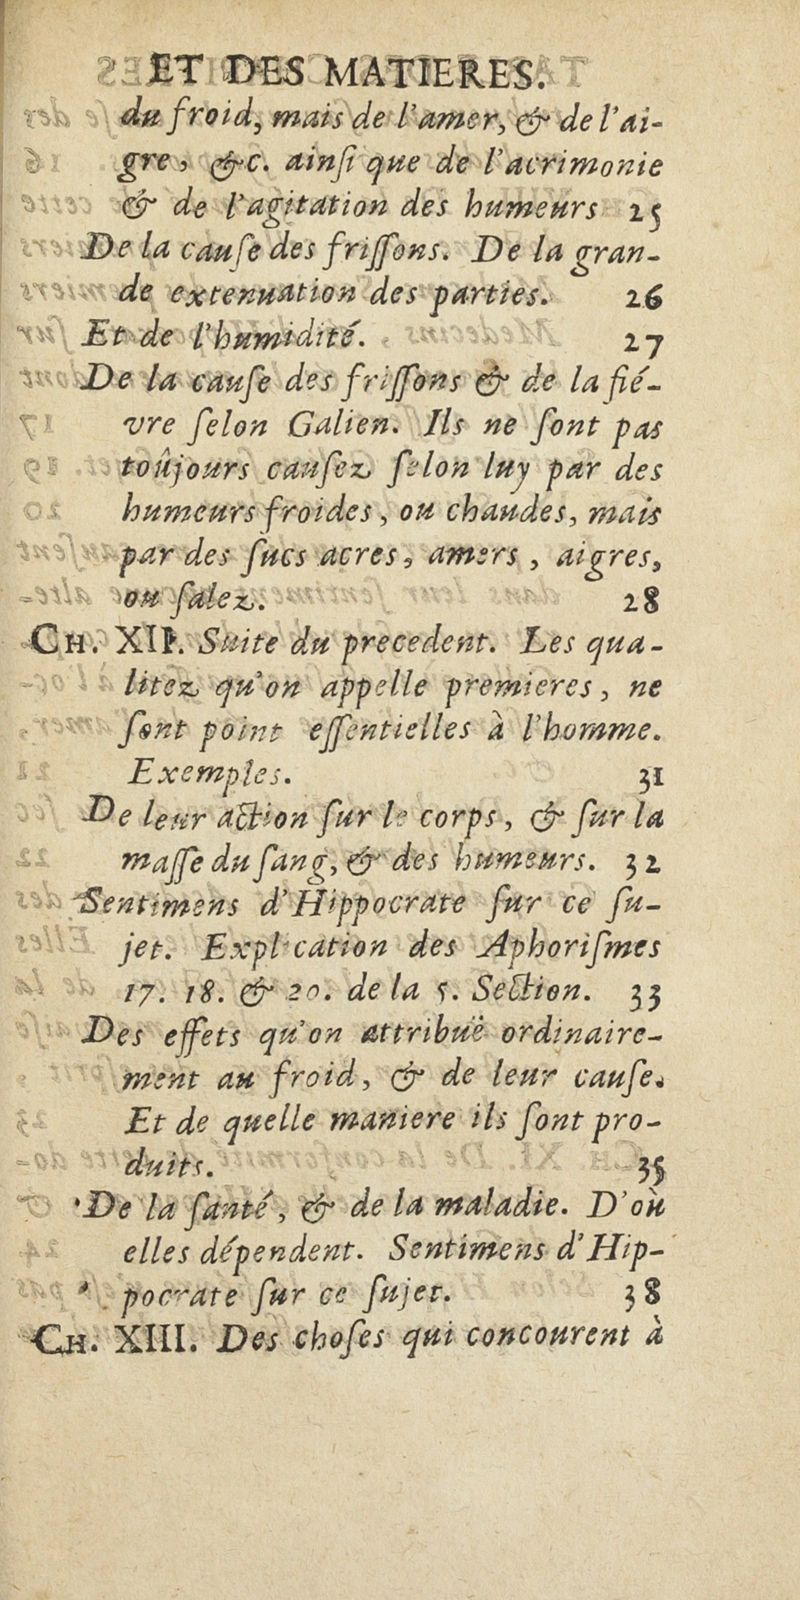 ET DES MATIERES.
du froid, mais de l'amer, & de l'ai-
gre, &c. ainſi que de l'acrimonie
& de l'agitation des humeurs 25
De la cauſe des friſſons. De la gran-
de extenuation des parties. 26
Et de l'humidité. 27
De la cauſe des friſſons & de la fié-
vre ſelon Galien. Ils ne ſont pas
toûjours cauſez ſelon luy par des
humeurs froides, ou chaudes, mais
par des ſucs acres, amers, aigres,
ou ſalez. 28
CH. XII. Suite du precedent. Les qua-
litez qu'on appelle premieres, ne
ſont point eſſentielles à l'homme.
Exemples. 31
De leur action ſur le corps, & ſur la
maſſe du ſang, & des humeurs. 32
Sentimens d'Hippocrate ſur ce ſu-
jet. Explication des Aphoriſmes
17. 18. & 20. de la 5. Section. 33
Des effets qu'on attribuë ordinaire-
ment au froid, & de leur cauſe.
Et de quelle maniere ils ſont pro-
duits. 35
De la ſanté, & de la maladie. D'où
elles dépendent. Sentimens d'Hip-
pocrate ſur ce ſujet. 38
CH. XIII. Des choſes qui concourent à